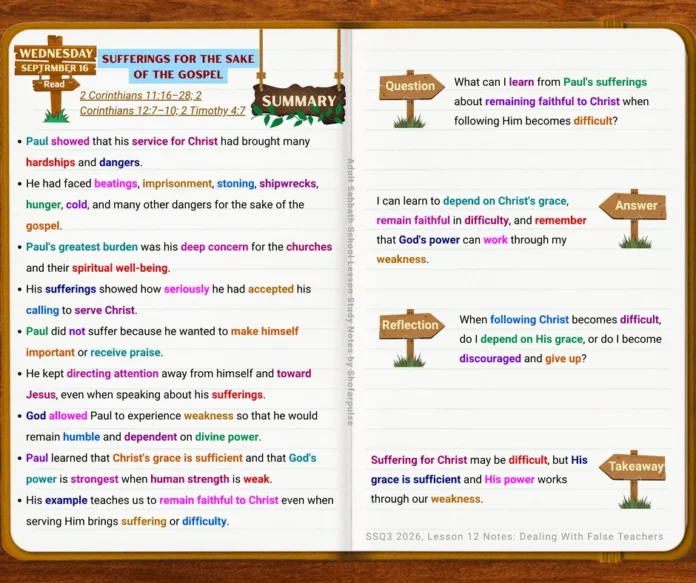 WEDNESDAY
SEPTRMBER 16
Read
SUFFERINGS FOR THE SAKE
OF THE GOSPEL
2 Corinthians 11:16–28; 2
Corinthians 12:7–10; 2 Timothy 4:7
SUMMARY
• Paul showed that his service for Christ had brought many
hardships and dangers.
• He had faced beatings, imprisonment, stoning, shipwrecks,
hunger, cold, and many other dangers for the sake of the
gospel.
• Paul's greatest burden was his deep concern for the churches
and their spiritual well-being.
• His sufferings showed how seriously he had accepted his
calling to serve Christ.
• Paul did not suffer because he wanted to make himself
important or receive praise.
• He kept directing attention away from himself and toward
Jesus, even when speaking about his sufferings.
• God allowed Paul to experience weakness so that he would
remain humble and dependent on divine power.
• Paul learned that Christ's grace is sufficient and that God's
power is strongest when human strength is weak.
• His example teaches us to remain faithful to Christ even when
serving Him brings suffering or difficulty.
Adult Sabbath School Lesson Study Notes by Shofarpulse
Question
What can I learn from Paul's sufferings
about remaining faithful to Christ when
following Him becomes difficult?
I can learn to depend on Christ's grace,
remain faithful in difficulty, and remember
that God's power can work through my
weakness.
Answer
Reflection
When following Christ becomes difficult,
do I depend on His grace, or do I become
discouraged and give up?
Suffering for Christ may be difficult, but His
grace is sufficient and His power works
through our weakness.
Takeaway
SSQ3 2026, Lesson 12 Notes: Dealing With False Teachers